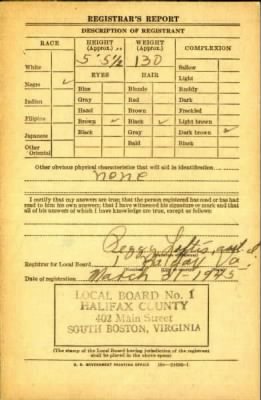 REGISTRAR'S REPORT
DESCRIPTION OF REGISTRANT
RACE HEIGHT (Approx.) WEIGHT (Approx.) COMPLEXION
5' 5½ 130
White Sallow
EYES HAIR Light
Negro ✓ Blue Blonde Ruddy
Indian Gray Red Dark
Hazel Brown Freckled
Filipino Brown ✓ Black ✓ Light brown
Japanese Black Gray Dark brown ✓
Other Oriental Bald Black
Other obvious physical characteristics that will aid in identification
none
I certify that my answers are true; that the person registered has read or has had
read to him his own answers; that I have witnessed his signature or mark and that
all of his answers of which I have knowledge are true, except as follows:
Peggy
Registrar for Local Board 1 Halifax Va.
Date of registration March 31-1945
LOCAL BOARD No. 1
HALIFAX COUNTY
402 Main Street
SOUTH BOSTON, VIRGINIA
(The stamp of the Local Board having jurisdiction of the registrant
shall be placed in the above space)
U. S. GOVERNMENT PRINTING OFFICE